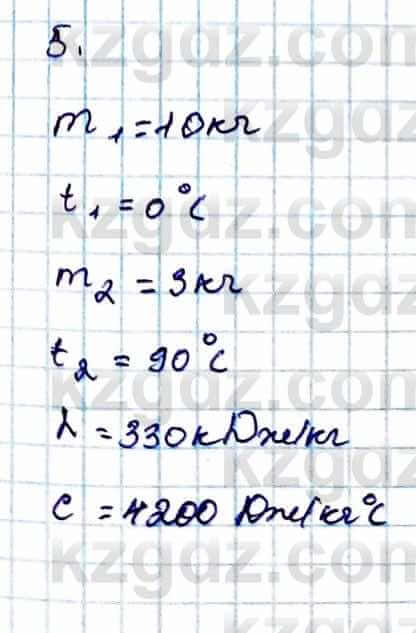 5.
m₁ = 10 кг
t₁ = 0°C
m₂ = 3 кг
t₂ = 90°C
λ = 330 кДж/кг
c = 4200 Дж/кг°C
kzgdz.com